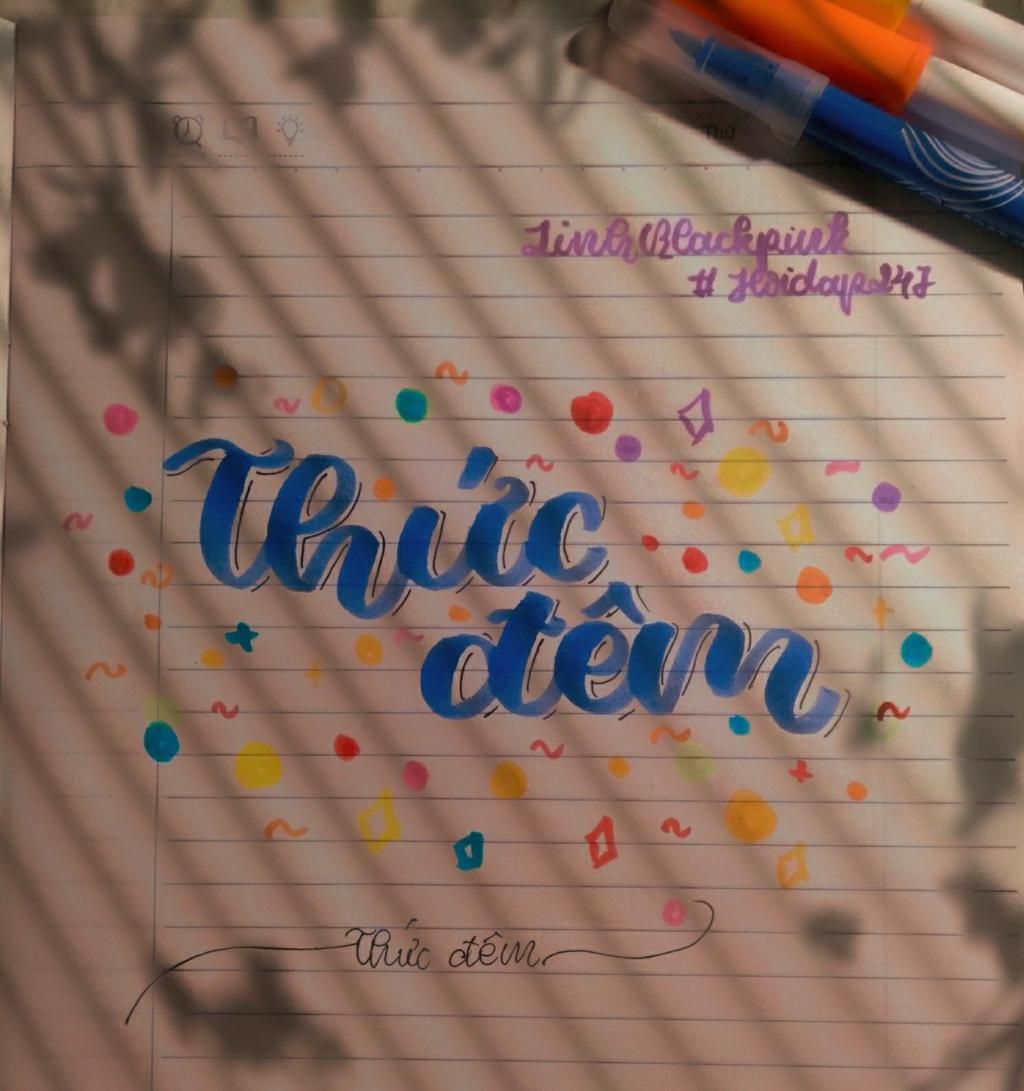 Thứ
Linh Blackpink
# Hoidap247
Thức
đêm
Thức đêm